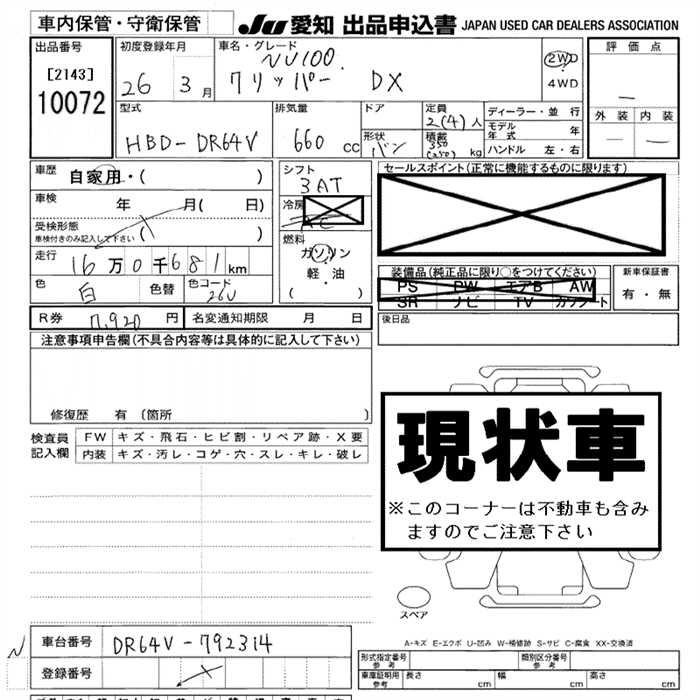 車内保管・守衛保管
JU 愛知 出品申込書 JAPAN USED CAR DEALERS ASSOCIATION
出品番号
[2143]
10072
初度登録年月
26 3月
車名・グレード
NV100
クリッパー DX
2WD
・
4WD
評価点
—
外装 内装
— —
型式
HBD-DR64V
排気量
660 cc
ドア
形状
バン
定員
2(4)人
積載
350
(250) kg
ディーラー・並行
モデル年式 年
ハンドル 左・右
車歴
自家用・( )
車検 年 月( 日)
受検形態
車検付きのみ記入して下さい ( )
走行
16万0千681km
色
白
色替
色コード
26U
シフト
3AT
冷房
AC
燃料
ガソリン
軽・油
( )
セールスポイント(正常に機能するものに限ります)
装備品(純正品に限り○をつけてください)
PS PW エアB AW
SR ナビ TV カワシート
新車保証書
有・無
後日品
R券 7,920円
名変通知期限 月 日
注意事項申告欄(不具合内容等は具体的に記入して下さい)
修復歴 有(箇所 )
検査員
記入欄
FW キズ・飛石・ヒビ割・リペア跡・X要
内装 キズ・汚レ・コゲ・穴・スレ・キレ・破レ
現状車
※このコーナーは不動車も含み
ますのでご注意下さい
スペア
A-キズ E-エクボ U-凹み W-補修跡 S-サビ C-腐食 XX-交換済
車台番号 DR64V-792314
登録番号
形式指定番号
参考
類別区分番号
参考
車庫証明用
参考
長さ cm 幅 cm 高さ cm